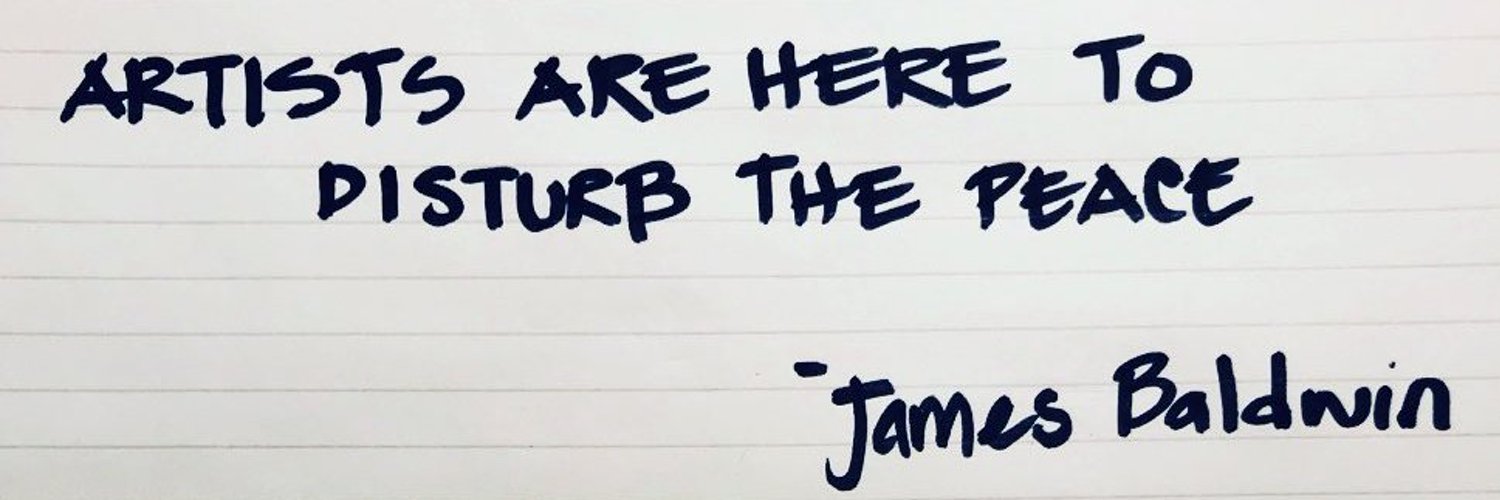 ARTISTS ARE HERE TO
DISTURB THE PEACE
-James Baldwin